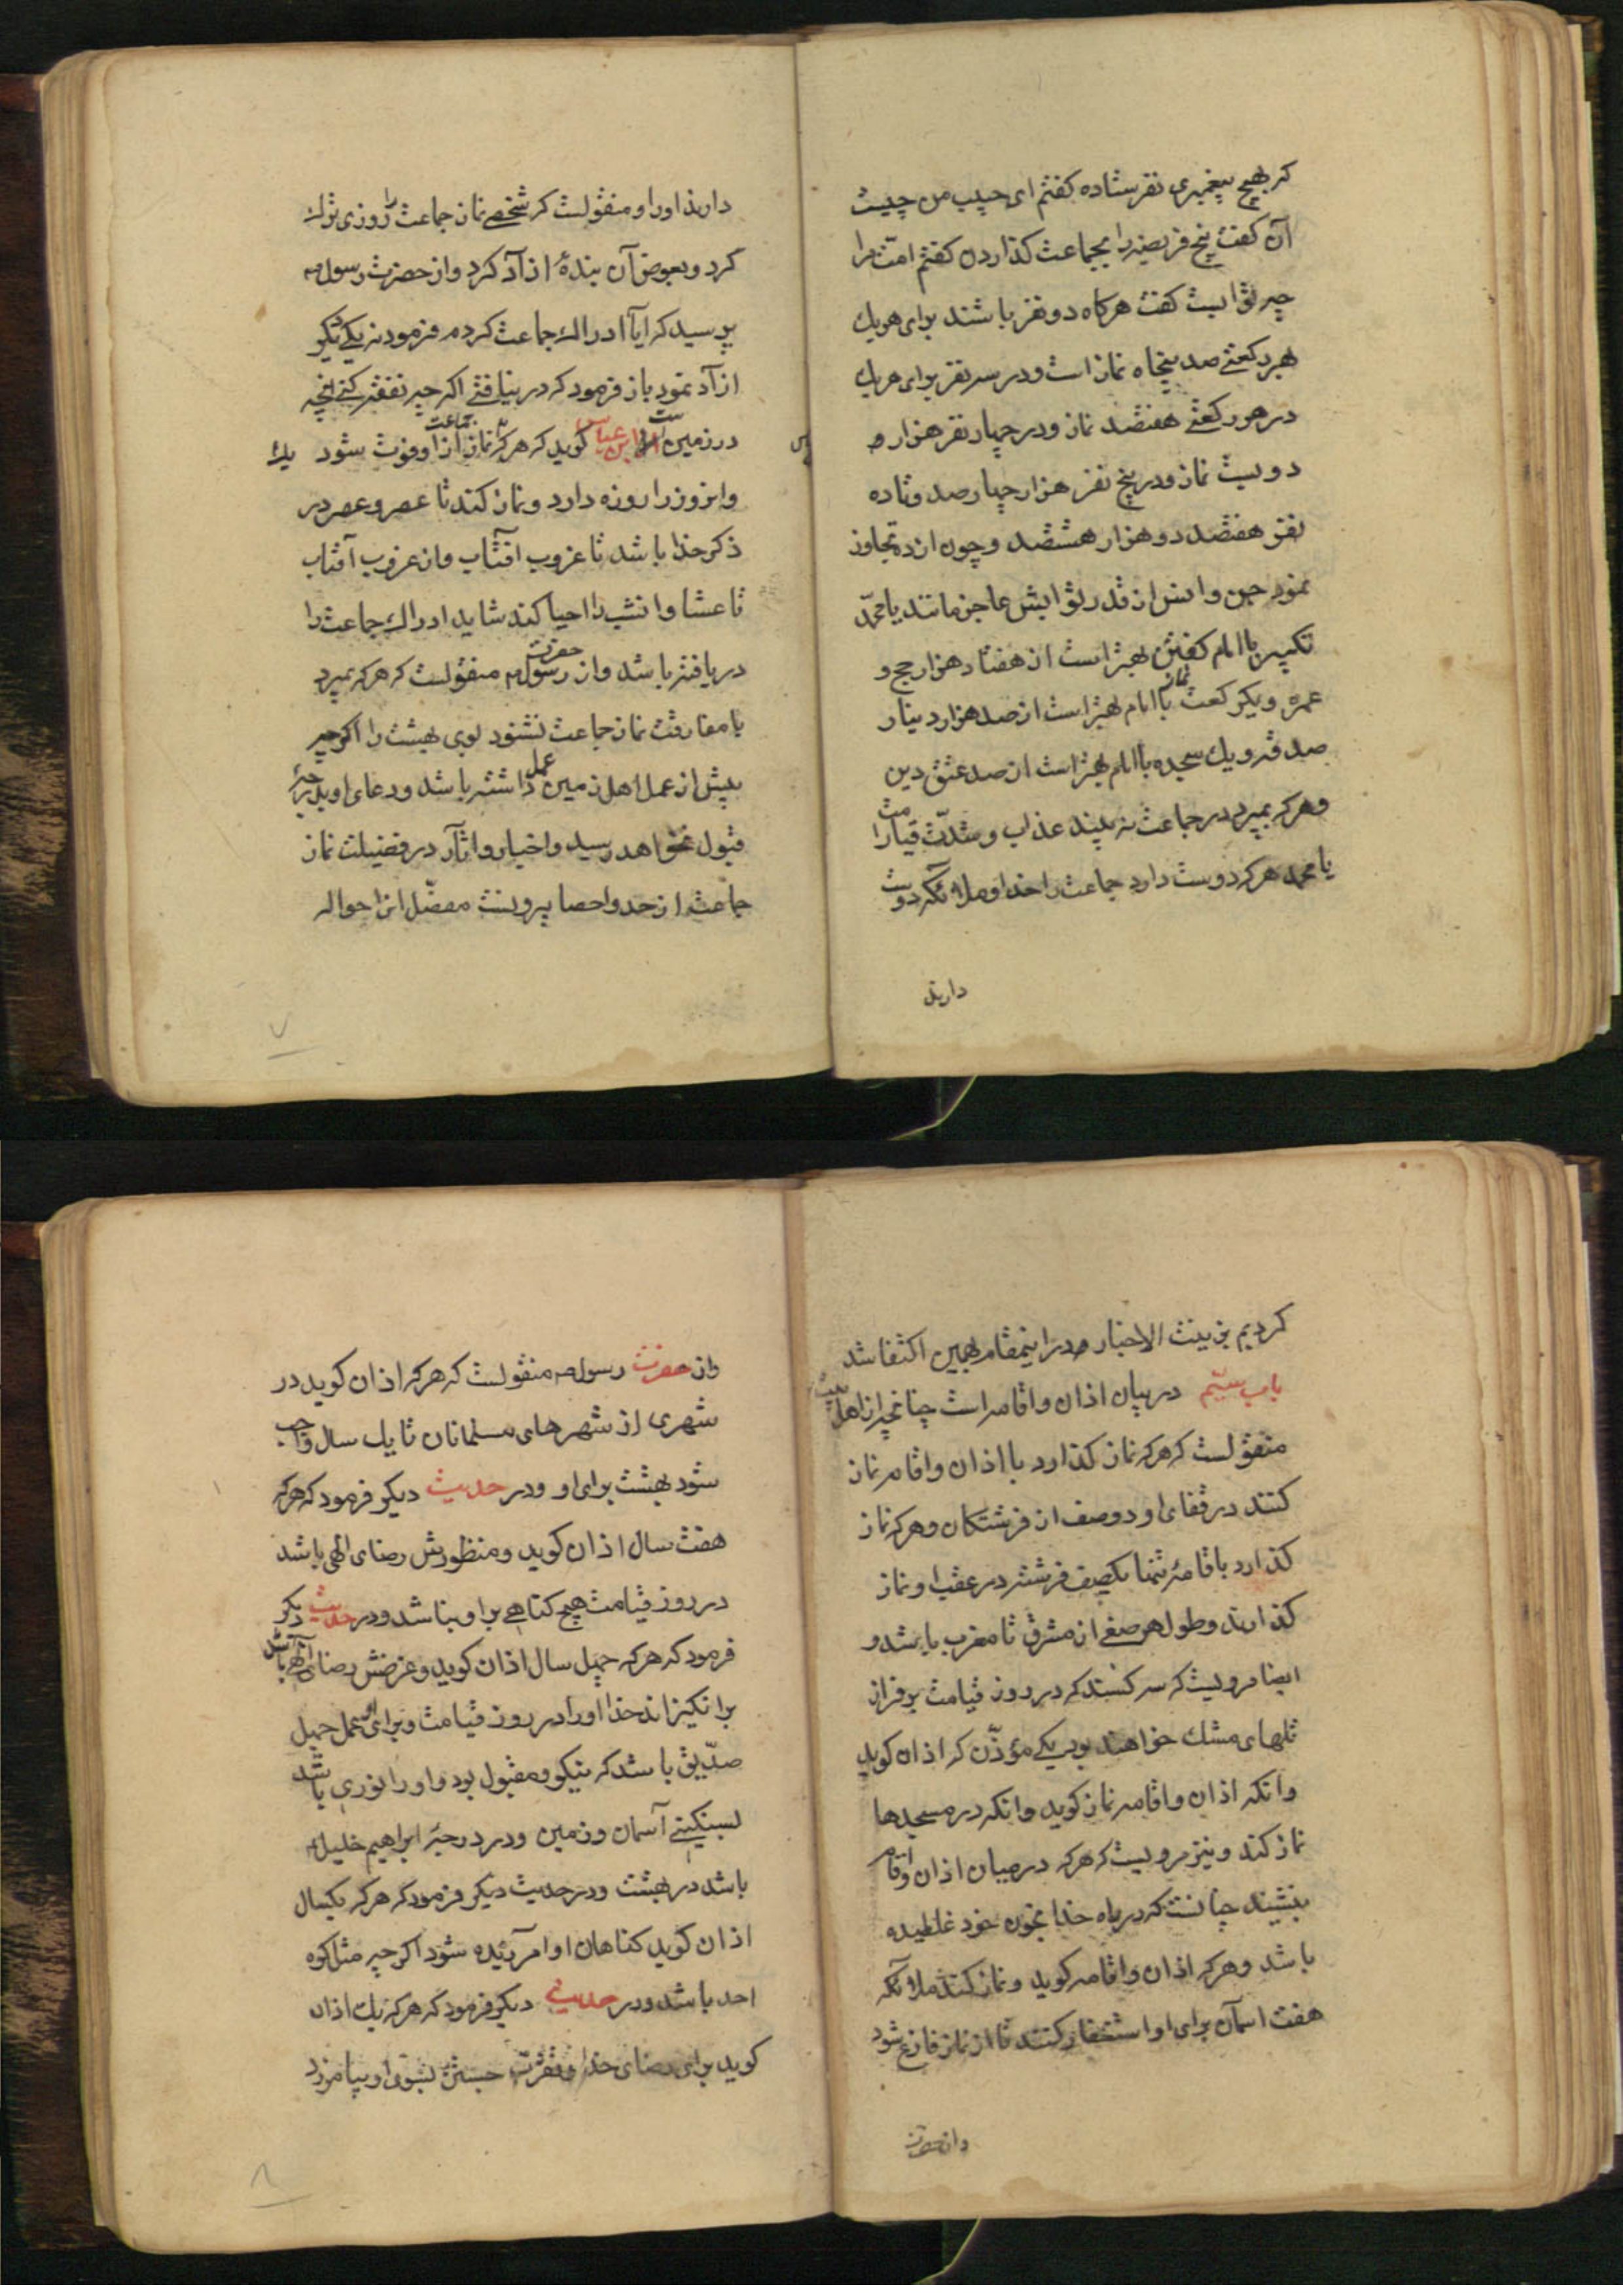 که بهیچ پیغمبری نفرستاده کفتم ای حبیب من چیست
آن کفت پنج فریضه را بجماعت کذاردن کفتم امّت مرا
چه ثوابست کفت هرکاه دو نفر باشند برای هریک
بهر رکعتی صد پنجاه نماز است و در سه نفر برای هریک
در هر رکعتی هفتصد نماز و در چهار نفر هزار و
دویست نماز و در پنج نفر هزار چهارصد و تا ده
نفر هفتصد دو هزار هشتصد و چون از ده تجاوز
نمود جن و انس از قدر ثوابش عاجز مانند یا محمّد
تکبیر با امام کفتن بهتر است از هفتاد هزار حج و
عمره و یکرکعت نماز با امام بهتر است از صد هزار دینار
صدقه و یک سجده با امام بهتر است از صد عتق
و هرکه بمیرد در جماعت نه بیند عذاب و شدّت قیامت را
یا محمد هرکه دوست دارد جماعت را خدا و ملائکه دوست
دارند
دارند او را و منقولست که شخصی نماز جماعت را روزی ترک
کرد و بعوض آن بندهٔ ازآد کرد و از حضرت رسول ص
پرسید که ایا ادراک جماعت کردم فرمود نه یکی دیکر
ازآد نمود باز فرمود که در نیافتی اکر چه نفقه کنی انچه
در زمین است ابن عباس کوید که هرکه نماز جماعت ازاو فوت شود یک
وانروز را روزه دارد و نماز کند تا عصر و عصر در
ذکر خدا باشد تا غروب افتاب و از غروب آفتاب
تا عشا وانشب را احیا کند شاید ادراک جماعت را
دریافته باشد و از حضرت رسول ص منقولست که هرکه بمیرد
با مفارقت نماز جماعت نشنود بوی بهشت را اکرچه
بیش از عمل اهل زمین عمل داشته باشد و دعای او بدرجهٔ
قبول نخواهد رسید و اخبار و اثار در فضیلت نماز
جماعت از حد و احصا بیرونست مفصّل انرا حواله
۷
کردیم بزینت الاخبار و در اینمقام بهمین اکتفا شد
باب سیّم در بیان اذان و اقامه است چنانچه از اهل بیت
منقولست که هرکه نماز کذارد با اذان و اقامه نماز
کنند در قفای او دو صف از فرشتکان و هرکه نماز
کذارد باقامهٔ تنها یکصف فرشته در عقب او نماز
کذارند و طول هر صفی از مشرق تا مغرب باشد و
ایضا مرویست که سه کسند که در روز قیامت بر فراز
تلهای مشک خواهند بود یکی مؤذّن که اذان کوید
وانکه اذان و اقامه نماز کوید وانکه در مسجدها
نماز کند و نیز مرویست که هرکه در میان اذان و اقامه
بنشیند چنانست که در راه خدا بخون خود غلطیده
باشد و هرکه اذان و اقامه کوید و نماز کند ملائکه
هفت اسمان برای او استغفار کنند تا از نماز فارغ شود
وازحضرت
واز حضرت رسول ص منقولست که هرکه اذان کوید در
شهری از شهرهای مسلمانان تا یک سال واجب
شود بهشت برای او و در حدیث دیکر فرمود که هرکه
هفت سال اذان کوید و منظورش رضای الهی باشد
در روز قیامت هیچ کناهی بر او نباشد و در حدیث دیکر
فرمود که هرکه چهل سال اذان کوید و غرضش رضای الهی باشد
برانکیزاند خدا او را در روز قیامت و برای او عمل چهل
صدّیق باشد که نیکو و مقبول بود و او را نوری باشد
بسنکینی آسمان و زمین و در درجهٔ ابراهیم خلیل
باشد در بهشت و در حدیث دیکر فرمود که هرکه یکسال
اذان کوید کناهان او امرزیده شود اکرچه مثل کوه
احد باشد و در حدیثی دیکر فرمود که هرکه یک اذان
کوید برای رضای خدا و تقرّب جستن بسوی او بیامرزد
۸